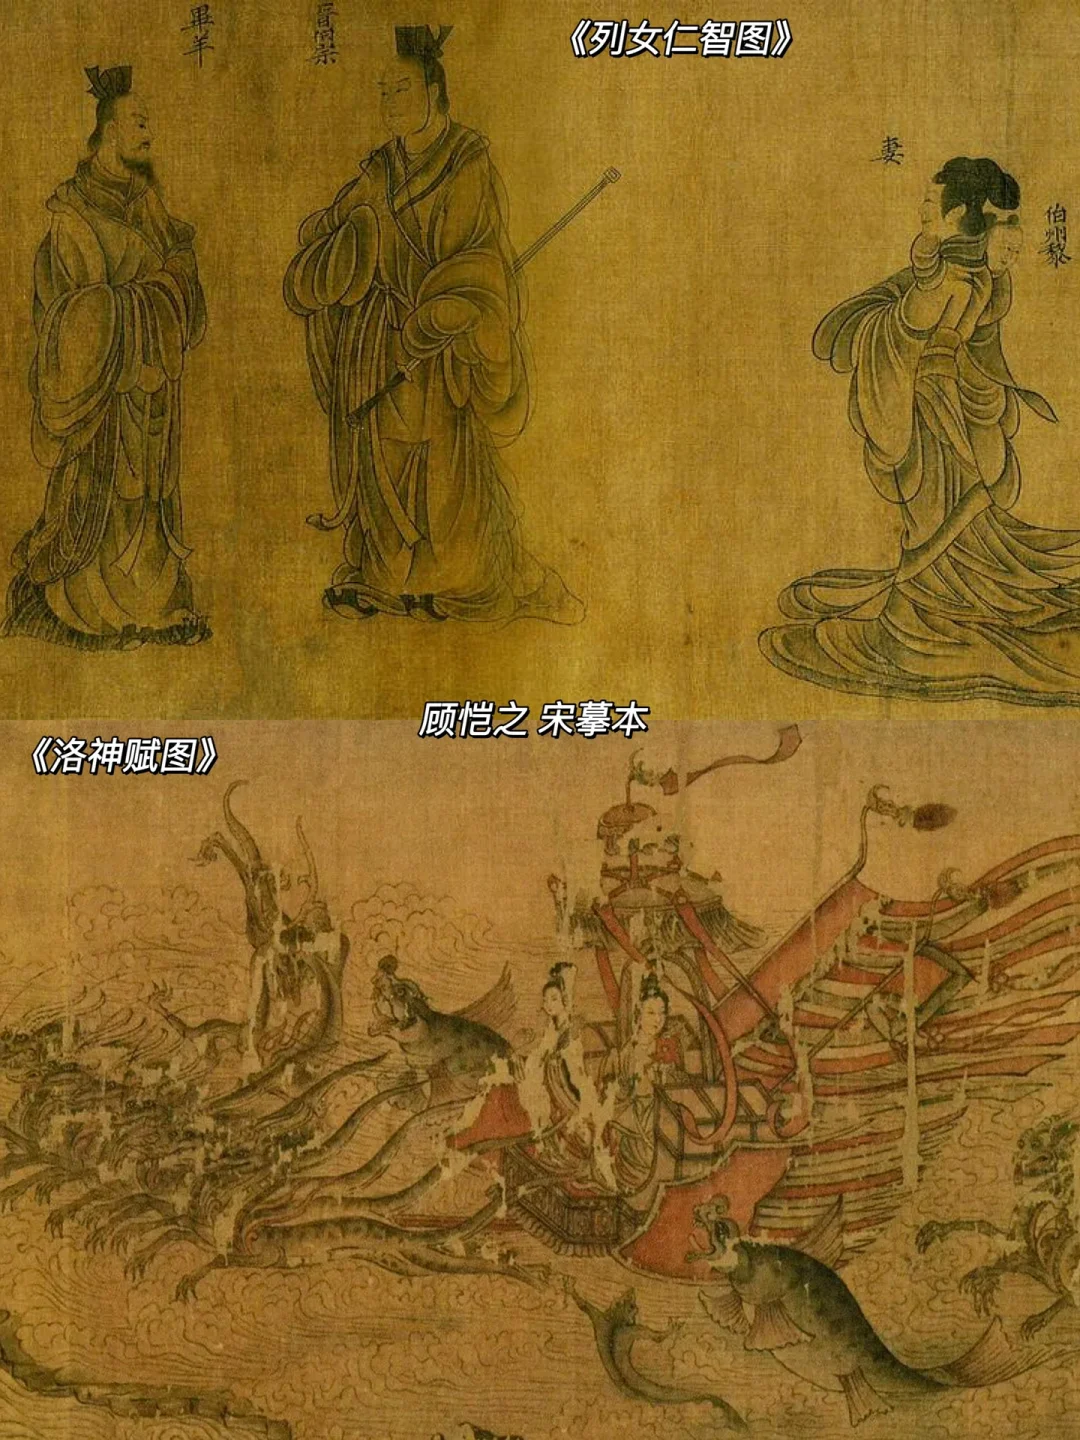 畢羊
晉伯宗
《列女仁智图》
妻
伯州黎
顾恺之 宋摹本
《洛神赋图》